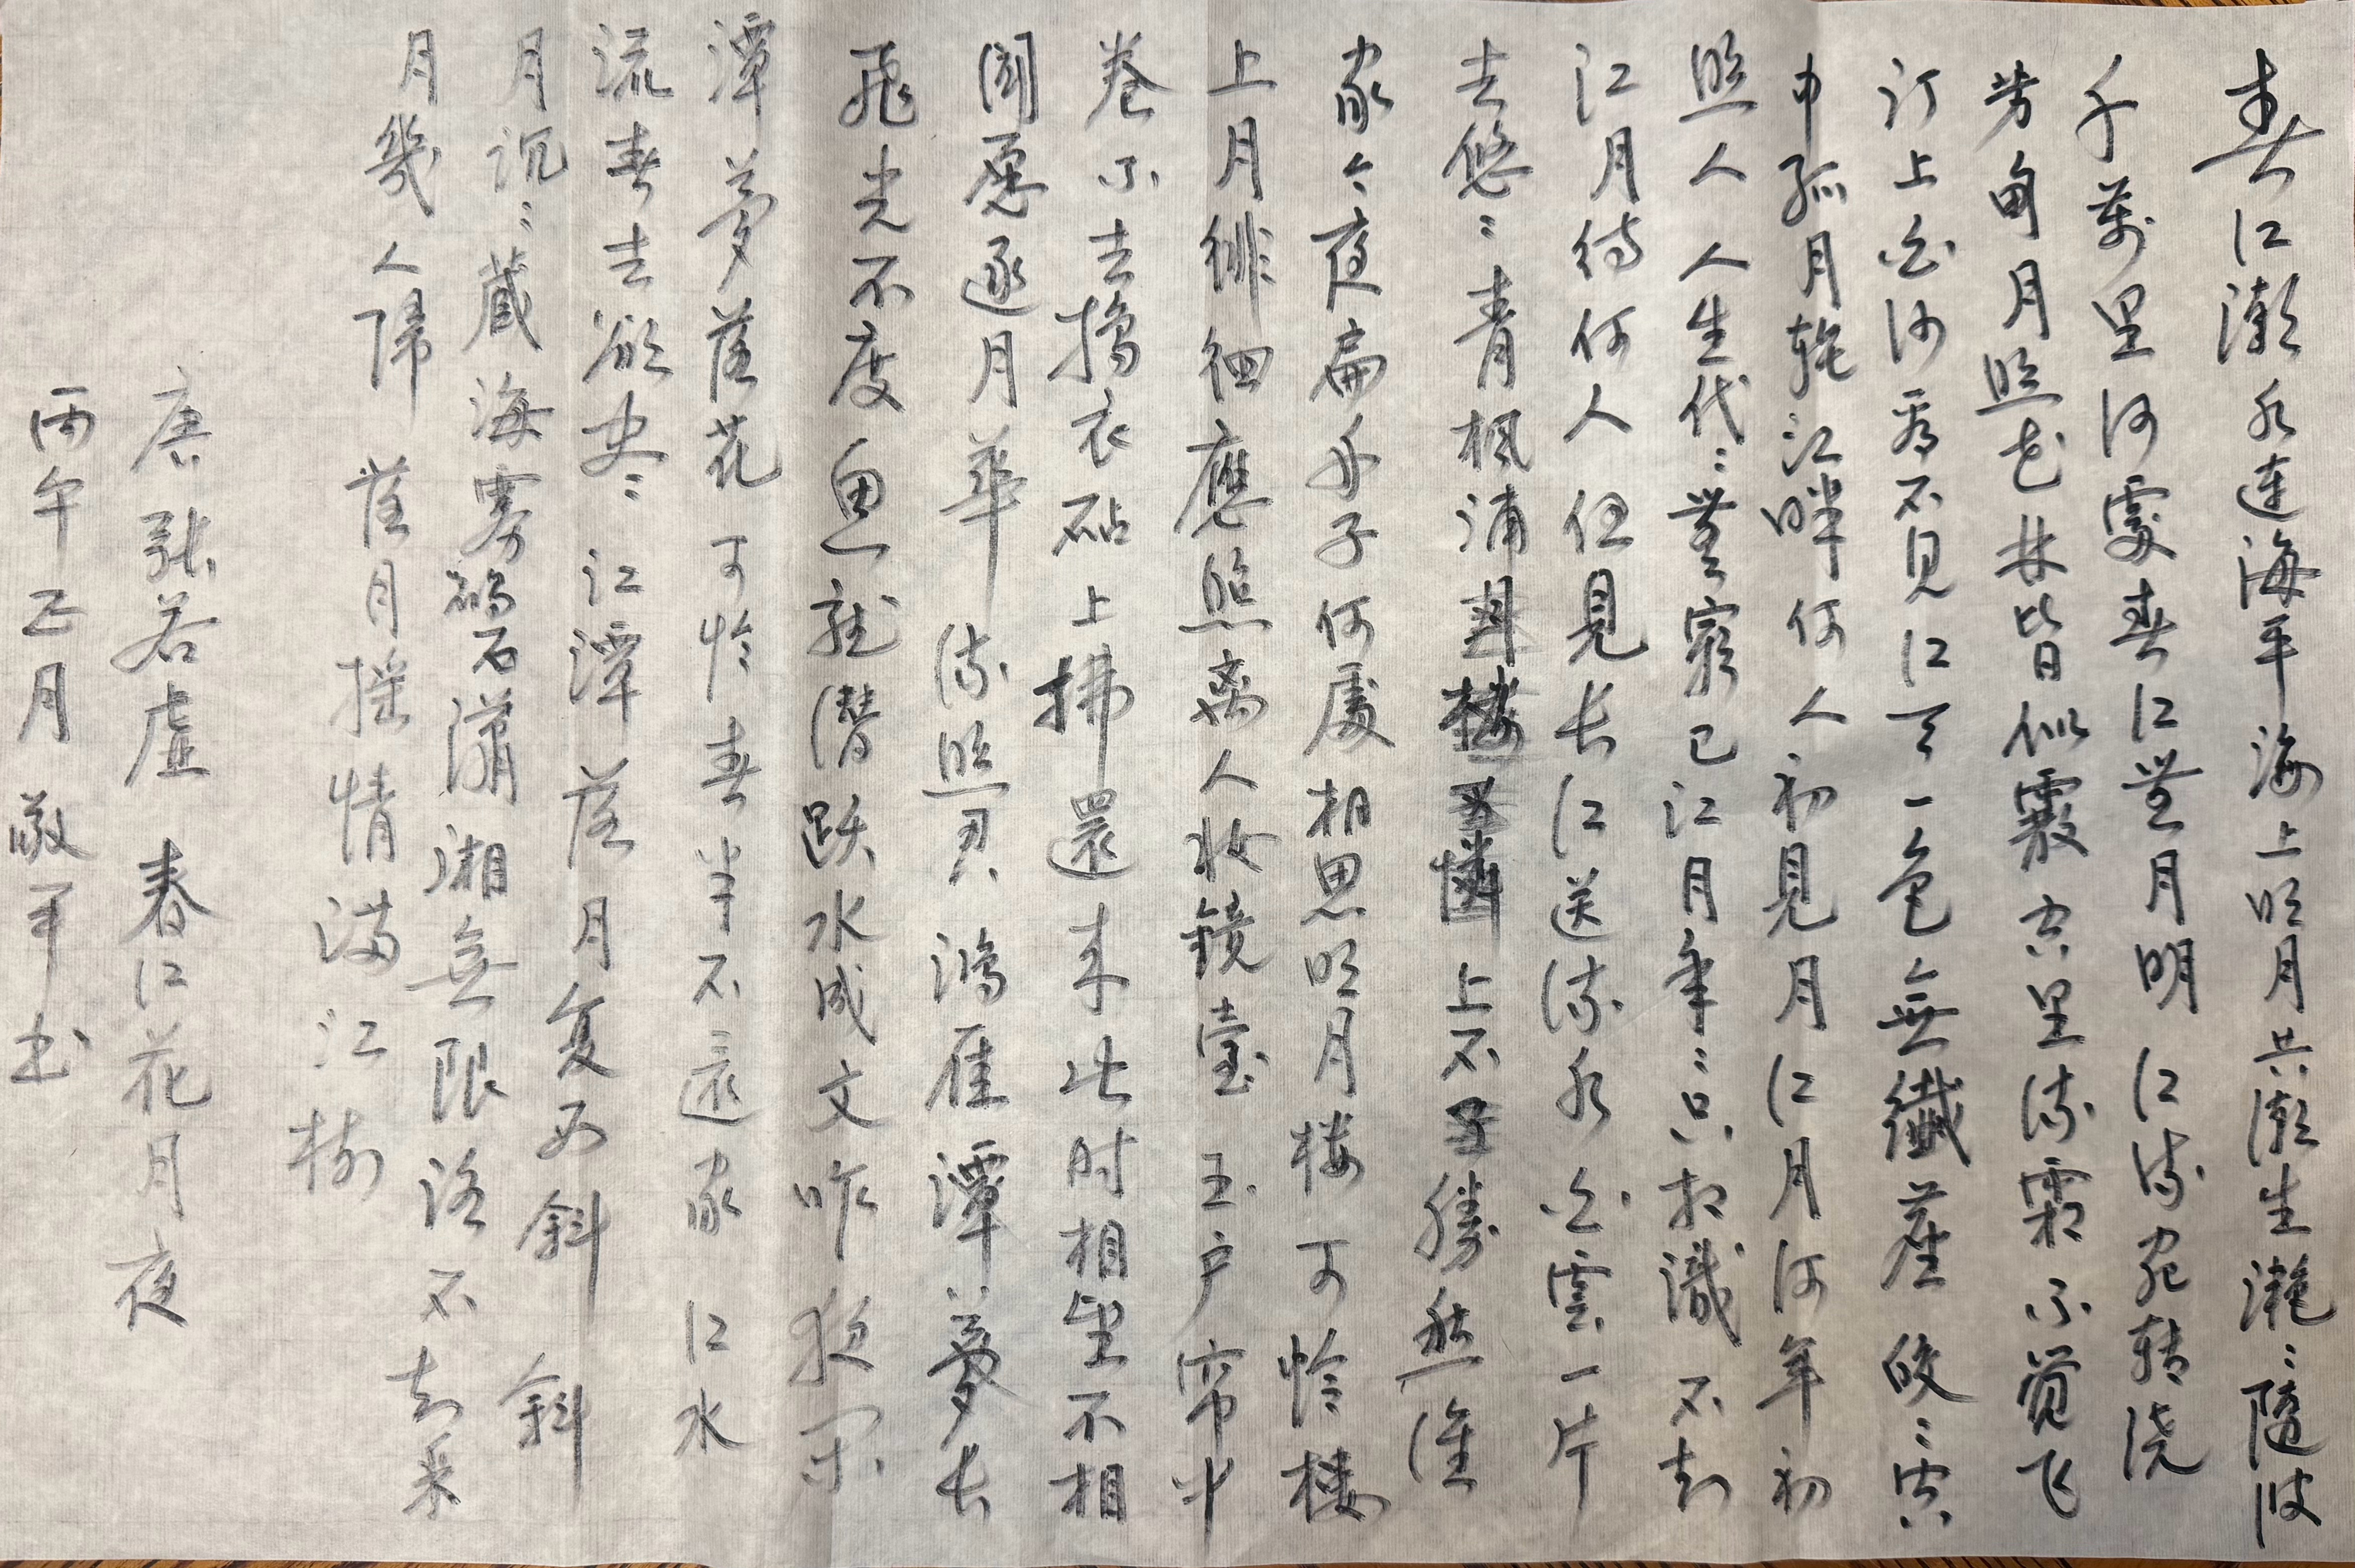 春江潮水連海平海上明月共潮生灔〻隨波
千萬里何處春江無月明江流宛转浇
芳甸月照花林皆似霰空里流霜不覚飞
汀上白沙看不見江天一色無纖塵皎〻空
中孤月輪江畔何人初見月江月何年初
照人人生代〻無窮已江月年〻只相識不知
江月待何人但見长江送流水白雲一片
去悠〻青枫浦上不勝愁谁
家今夜扁舟子何處相思明月楼可怜楼
上月徘徊應照离人妆鏡臺玉户帘中
卷不去擣衣砧上拂還来此时相望不相
聞愿逐月華流照君鴻雁潭夢长
飛光不度魚龍潛跃水成文昨夜閑
潭夢落花可怜春半不還家江水
流春去欲尽江潭落月复西斜斜
月沉〻藏海雾碣石潇湘無限路不知乘
月幾人歸落月摇情满江樹
唐張若虚 春江花月夜
丙午正月 敬平书